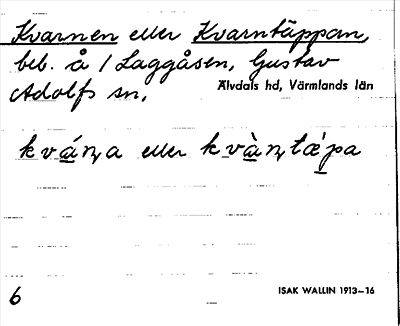 Kvarnen eller Kvarntäppan,
beb. å 1 Laggåsen, Gustav
Adolfs sn. Älvdals hd, Värmlands län
kvá̱ɳa eller kvà̱ɳtǽ̱pa
6 ISAK WALLIN 1913–16